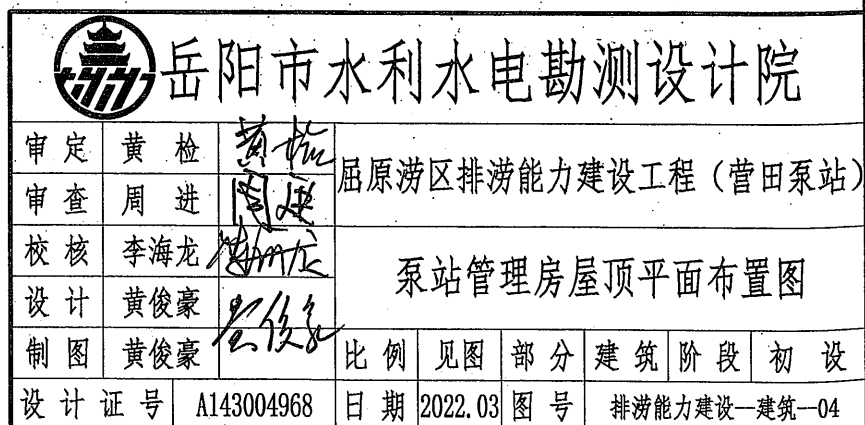 岳阳市水利水电勘测设计院
审定 黄检 黄检
屈原涝区排涝能力建设工程（营田泵站）
审查 周进 周进
校核 李海龙
泵站管理房屋顶平面布置图
设计 黄俊豪
制图 黄俊豪
比例 见图 部分 建筑 阶段 初设
设计证号 A143004968 日期 2022.03 图号 排涝能力建设--建筑--04